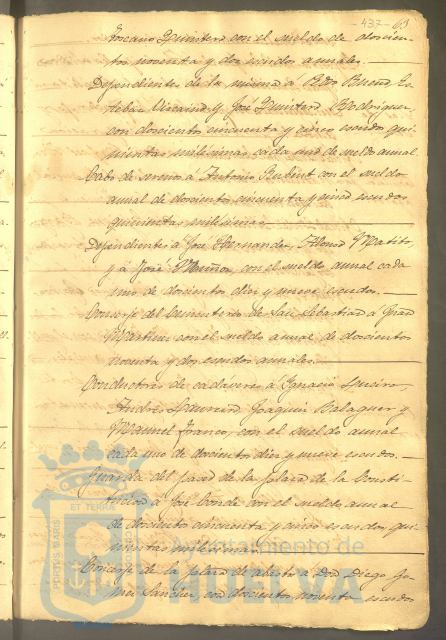 - 437 - 63
Toscano Quintero con el sueldo de doscien-
tos noventa y dos escudos anuales.
Dependientes de la misma á Pedro Bueno, Es-
teban Vizcaino y José Quintero Rodriguez,
con doscientos cincuenta y cinco escudos qui-
nientas milésimas cada uno de sueldo anual.
Cabo de sereno á Antonio Rubint con el sueldo
anual de doscientos cincuenta y cinco escudos
quinientas milésimas.
Dependiente á José Hernandez, Alfonso Matito,
y á José Muñoz con el sueldo anual cada
uno de doscientos diez y nueve escudos.
Conserje del Cementerio de San Sebastian á Juan
Martinez con el sueldo anual de doscientos
noventa y dos escudos anuales.
Conductores de cadáveres á Ignacio
Andrés Joaquin Balaguer y
Manuel Franco, con el sueldo anual
cada uno de doscientos diez y nueve escudos.
Guarda del paseo de la plaza de la Consti-
tucion á José Conde con el sueldo anual
de doscientos cincuenta y cinco escudos qui-
nientas milésimas.
Conserje de la plaza de abastos Don Diego Go-
mez Sanchez, con doscientos noventa escudos
PORTUS MARIS
ET TERRAE
CUSTODIA
Ayuntamiento de
HUELVA